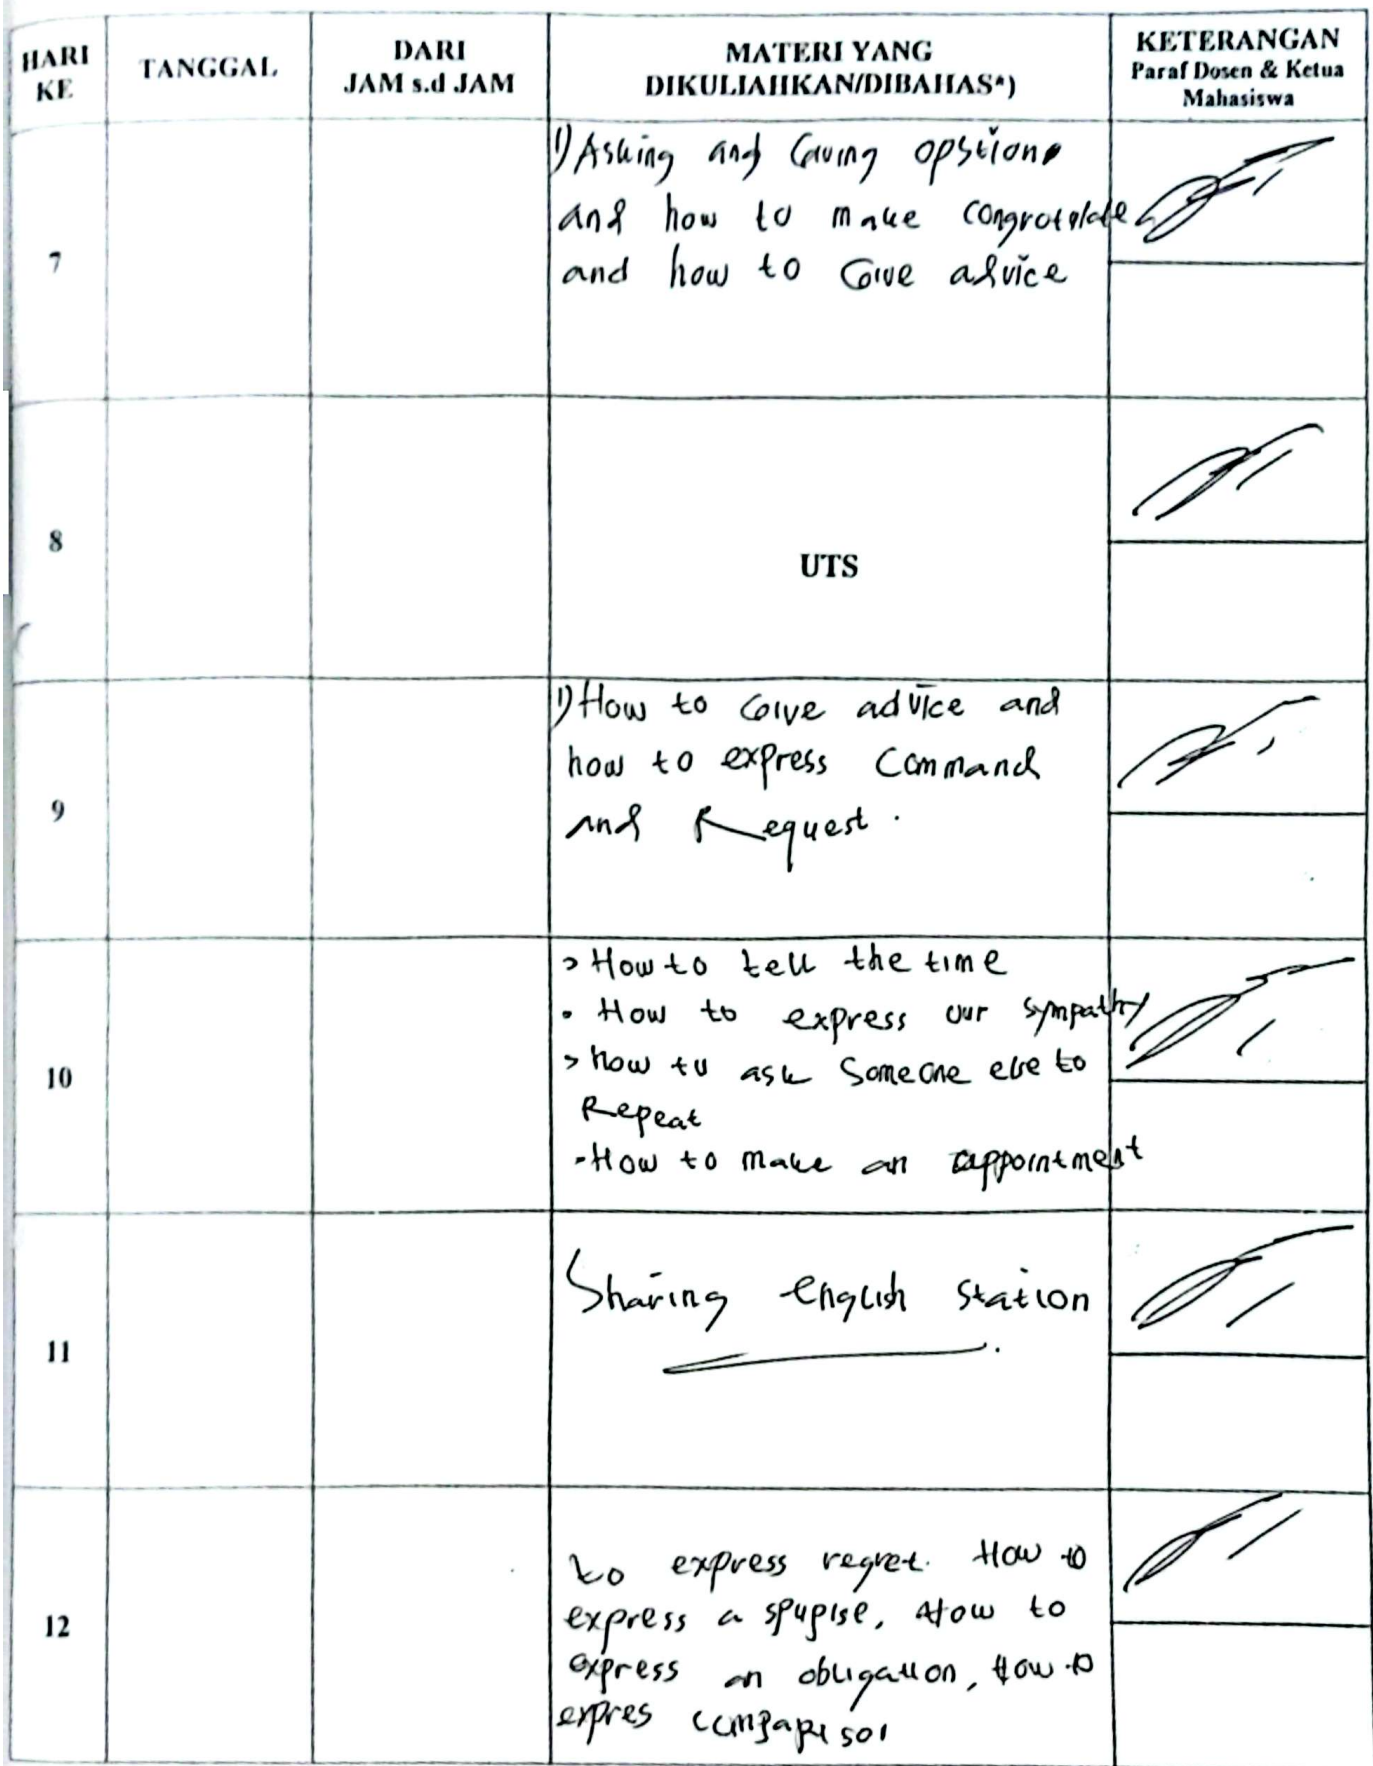 HARI KE
TANGGAL
DARI
JAM s.d JAM
MATERI YANG
DIKULIAHKAN/DIBAHAS*)
KETERANGAN
Paraf Dosen & Ketua
Mahasiswa
7
1) Asking and Giving opstion
and how to make congratulate
and how to Give advice
8
UTS
9
1) How to Give advice and
how to express Command
and Request.
10
> How to tell the time
• How to express our sympathy
> how to ask Someone else to
Repeat
- How to make an appointment
11
Sharing english station
12
to express regret. How to
express a spupise, How to
express an obligation, How to
expres comparison